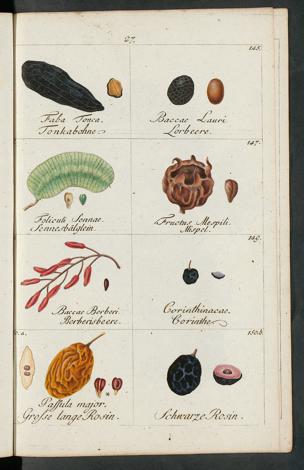 27.
145.
Faba Tonca.
Tonkabohne
Baccae Lauri.
Lorbeere.
147.
Folliculi Sennae.
Sennesbälglein.
Fructus Mespili.
Mispel.
149.
Baccae Berberi.
Berberisbeere.
Corinthiacae.
Corinthe
o.a.
150.b.
Passula major.
Grosse lange Rosin.
Schwarze Rosin.